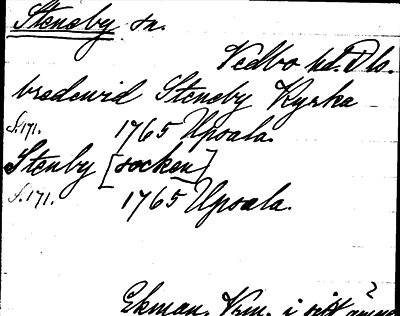 Steneby sn.
Vedbo hd. Dls.
bredewid Steneby Kyrka
S. 171. 1765 Upsala.
Stenby [socken]
S. 171. 1765 Upsala.
Ekman, Km. i sitt ämne